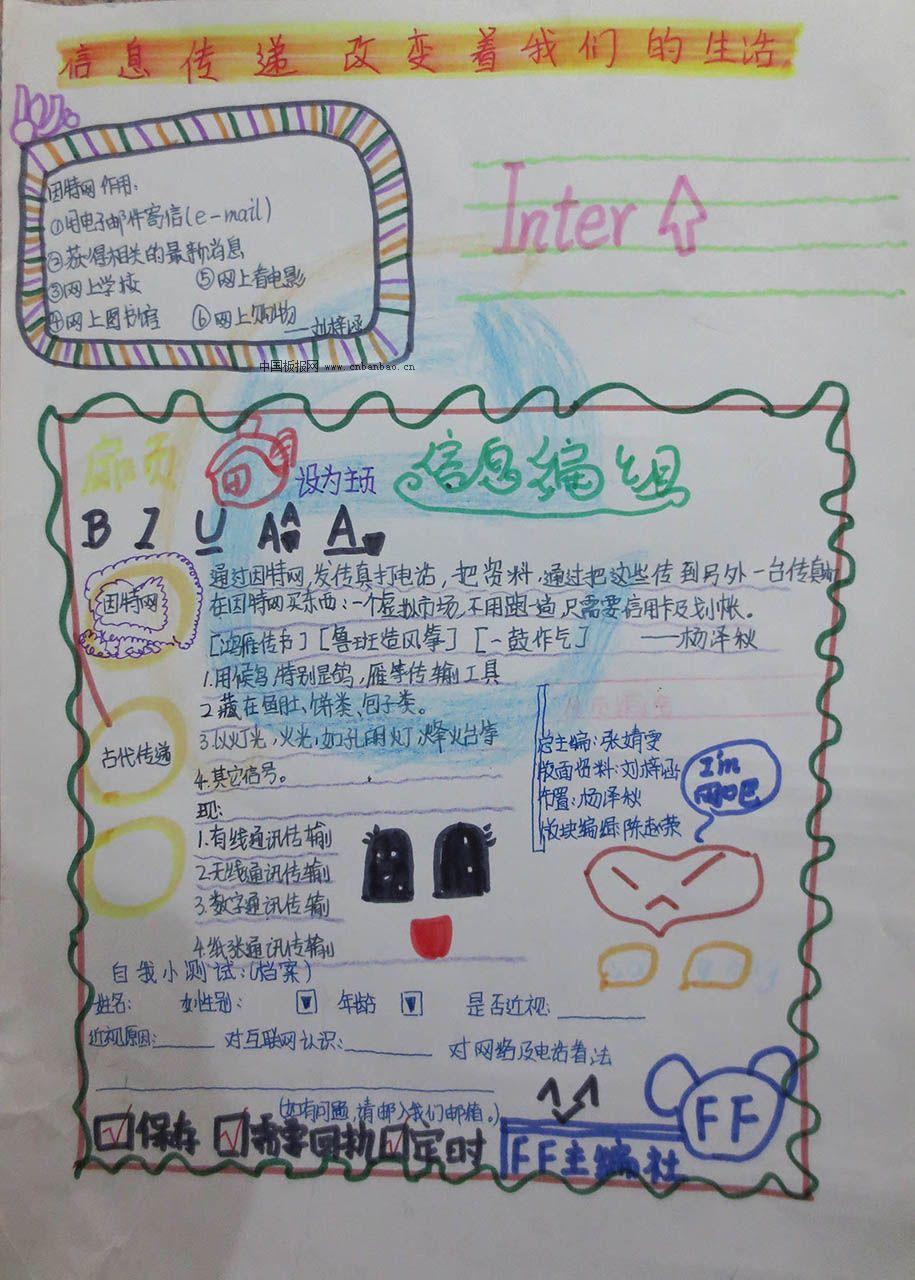 信息传递 改变着我们的生活
因特网作用:
①用电子邮件寄信(e-mail)
②获得相关的最新消息
③网上学校 ⑤网上看电影
④网上图书馆 ⑥网上购物
——刘梓涵
中国板报网 www.cnbanbao.cn
Inter
扉页
设为主页
信息编组
B I U AA A
因特网
通过因特网,发传真打电话,把资料,通过把这些传到另外一台传真
在因特网买东西:一个虚拟市场,不用跑一趟只需要信用卡及划帐。
[鸿雁传书][鲁班造风筝][一鼓作气] ——杨泽秋
1.用候鸟,特别是鸽,雁等传输工具
2.藏在鱼肚、饼类、包子类。
古代传递
3.以灯光,火光,如孔明灯,烽火台等
4.其它信号。
现:
1.有线通讯传输
2.无线通讯传输
3.数字通讯传输
4.纸张通讯传输
总主编:张婧雯
版面资料:刘梓涵
布置:杨泽秋
I'm
网吧
自我小测试:(档案)
姓名: 性别: 年龄 是否近视:
近视原因: 对互联网认识: 对网络及电话看法
(如有问题,请邮入我们邮箱。)
保存 需要回执 定时
FF
FF主编社